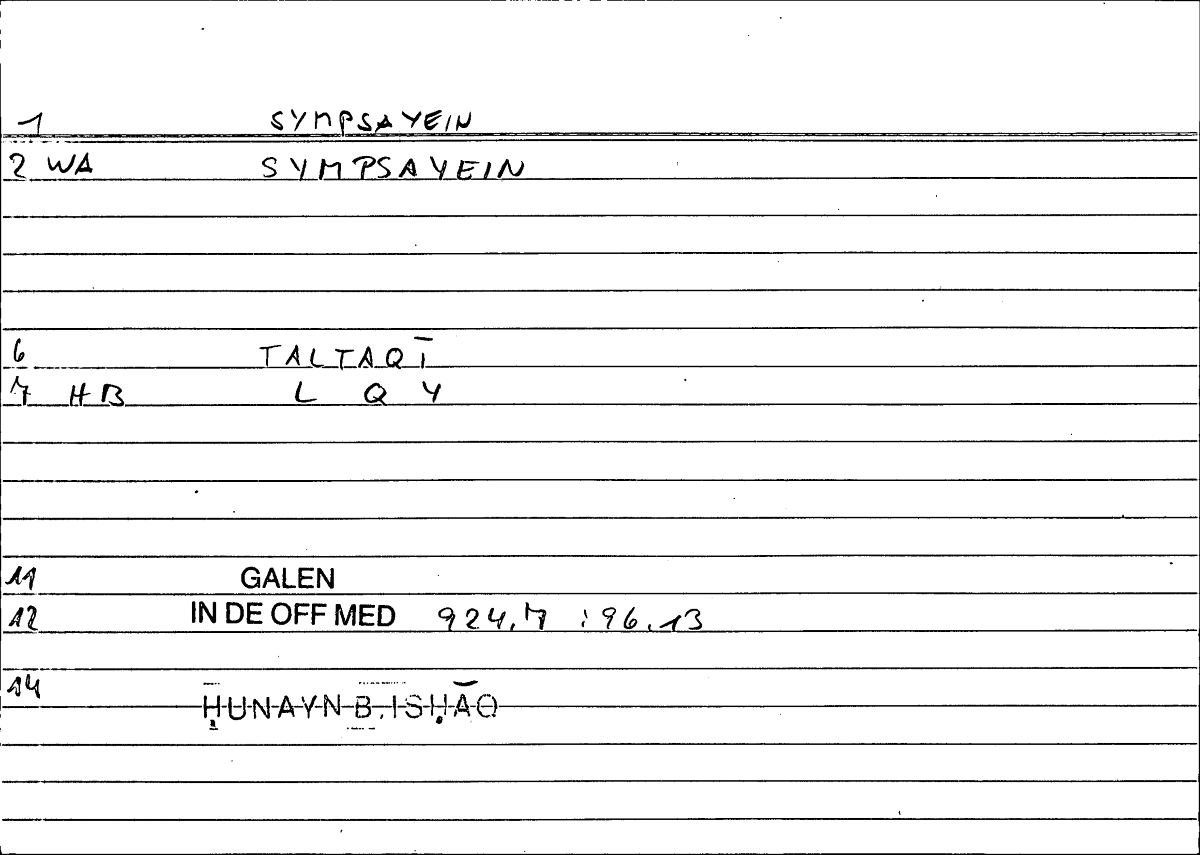 1 SYMPSAYEIN
2 WA SYMPSAYEIN
6 TALTAQĪ
7 HB L Q Y
11 GALEN
12 IN DE OFF MED 924,7 : 96.13
14 ḤUNAYN B. ISḤĀQ